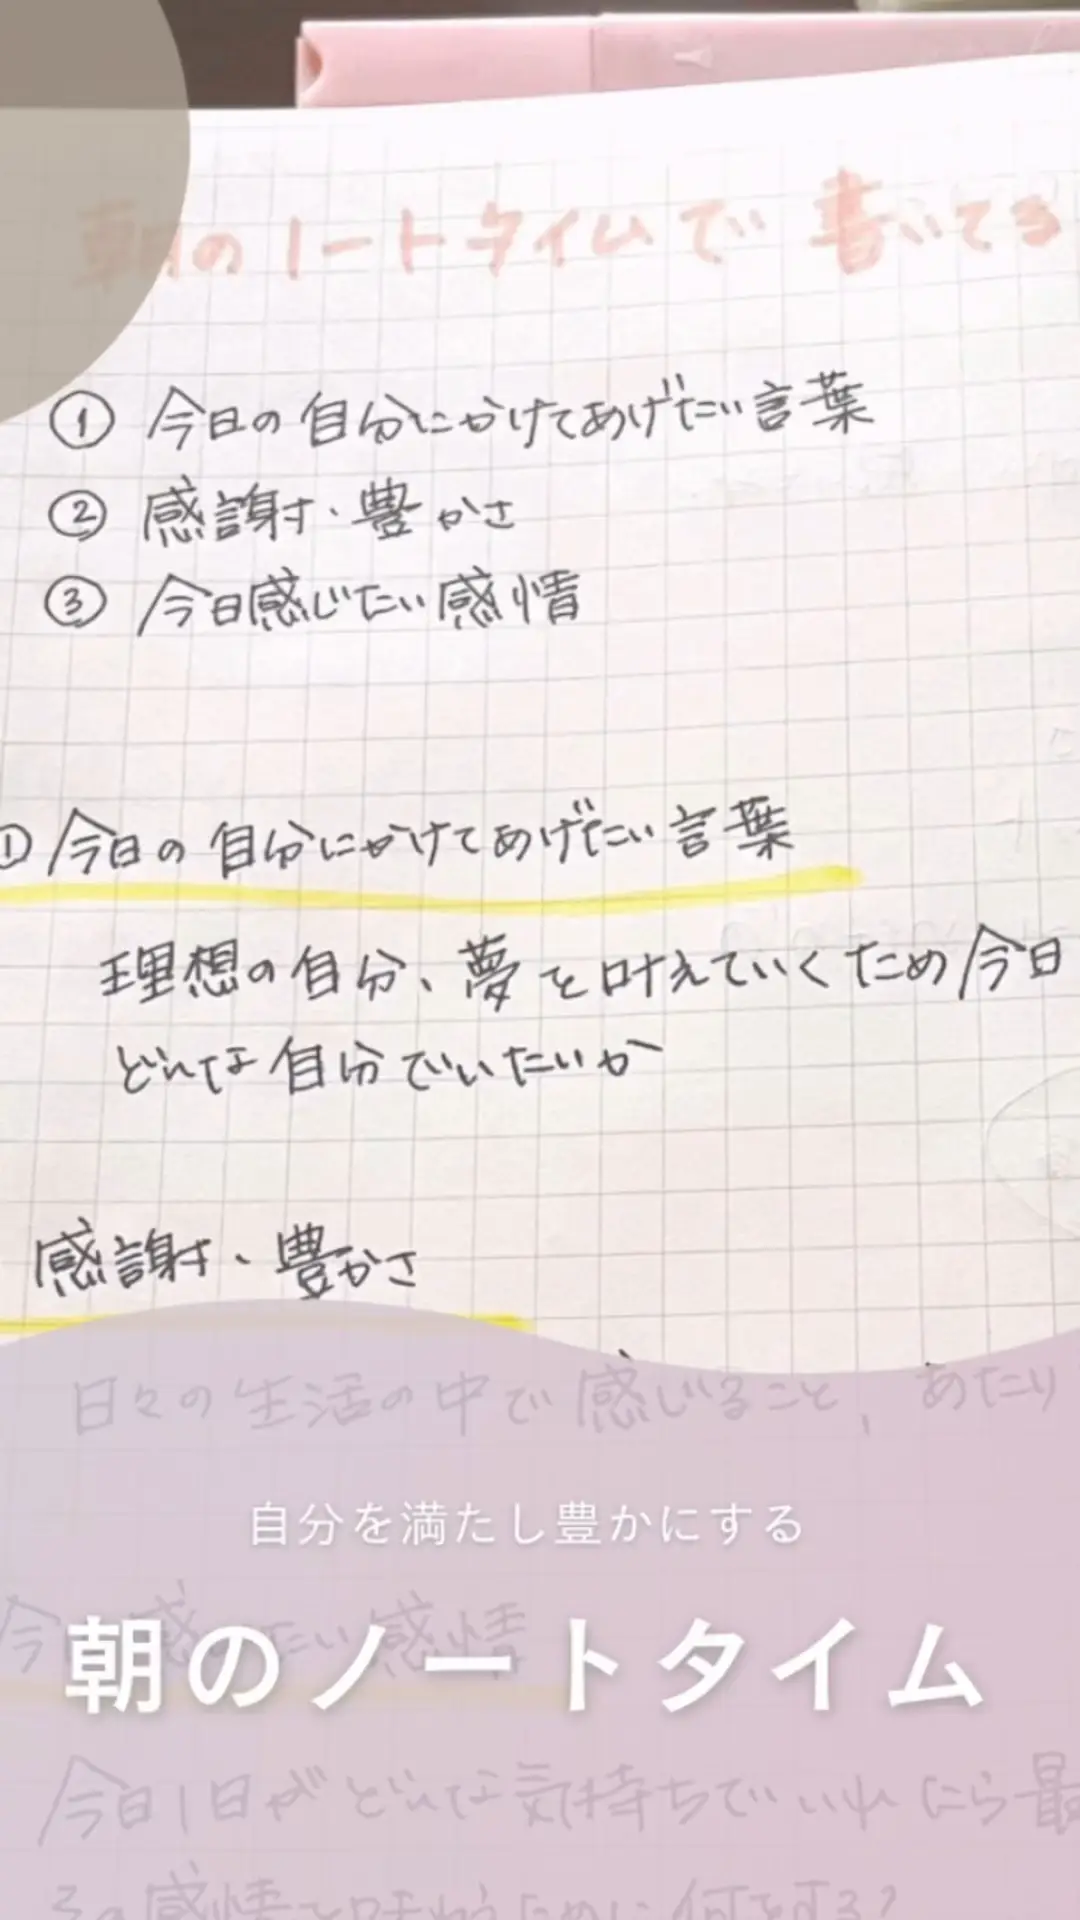 朝のノートタイムで書いてる
① 今日の自分にかけてあげたい言葉
② 感謝・豊かさ
③ 今日感じたい感情
① 今日の自分にかけてあげたい言葉
理想の自分、夢を叶えていくため今日
どんな自分でいたいか
感謝・豊かさ
日々の生活の中で感じること、あたり
自分を満たし豊かにする
今 感 たい感情
朝のノートタイム
今日1日がどんな気持ちでいれたら最
その感情を味わうために何をする?